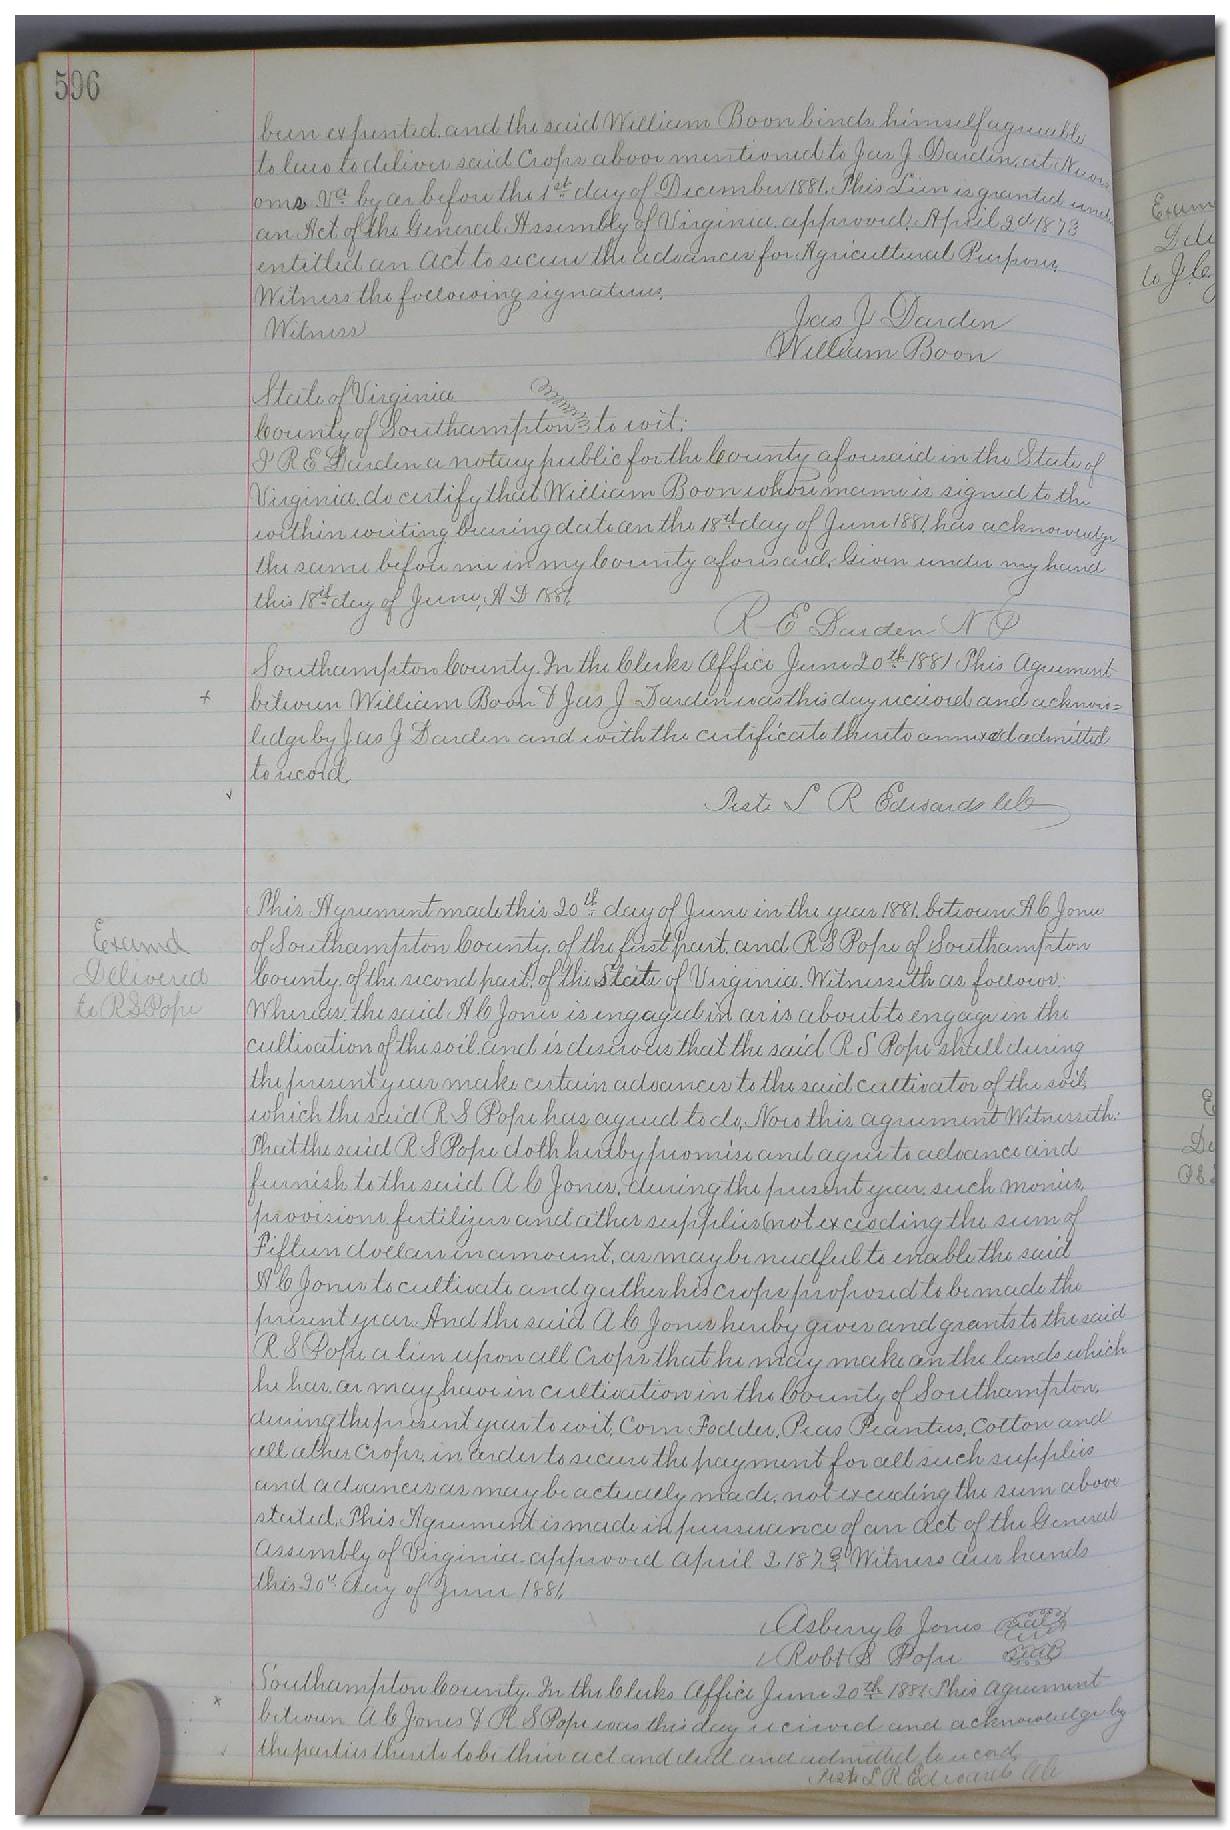 596
been expented. and the said William Boon binds himself agreeable
to law to deliver said Crops above mentioned to Jas J. Darden, at
oms Va by or before the 1st day of December 1881. This Lien is granted under
an Act of the General Assembly of Virginia approved, April 2d 1873
entitled an act to secure the advances for Agricultural Purposes.
Witness the following signatures,
Witness
Jas J Darden
William Boon
State of Virginia
County of Southampton to wit:
I R E Darden a notary public for the County aforesaid in the State of
Virginia, do certify that William Boon whose name is signed to the
within writing bearing date on the 18th day of June 1881, has acknowledge
the same before me in my County aforesaid, Given under my hand
this 18th day of June, A D 1881,
R E Darden N P
Southampton County. In the Clerks Office June 20th 1881 This Agreement
x
between William Boon & Jas J Darden was this day received and acknow=
ledge by Jas J Darden and with the certificate thereto annexed admitted
to record,
Teste L R Edwards CC
This Agreement made this 20th day of June in the year 1881, between A C Jones
Examd
of Southampton County, of the first part, and R S Pope of Southampton
Delivered
County, of the second part, of the State of Virginia. Witnesseth as follows:
to R S Pope
Whereas, the said A C Jones is engaged in or is about to engage in the
cultivation of the soil and is desirous that the said R S Pope shall during
the present year make certain advances to the said cultivator of the soil,
which the said R S Pope has agreed to do, Now this agreement Witnesseth:
That the said R S Pope doth hereby promise and agree to advance and
furnish to the said A C Jones, during the present year, such monies,
provisions fertilizers and other supplies (not exceeding the sum of
Fifteen dollars in amount, as may be needful to enable the said
A C Jones to cultivate and gather his crops proposed to be made the
present year. And the said A C Jones hereby gives and grants to the said
R S Pope a lien upon all Crops that he may make on the lands which
he has, or may have in cultivation in the County of Southampton,
during the present year to wit, Corn Fodder, Peas Peanuts, Cotton and
all other Crops, in order to secure the payment for all such supplies
and advances as may be actually made, not exceeding the sum above
stated, This Agreement is made in pursuance of an act of the General
Assembly of Virginia approved April 2 1873, Witness our hands
this 20th day of June 1881,
Asberry C Jones Seal
Robt S Pope Seal
Southampton County. In the Clerks Office June 20th 1881 This agreement
x
between A C Jones & R S Pope was this day received and acknowledge by
the parties thereto to be their act and deed and admitted to record,
Teste L R Edwards CC
Exam
Deli
to J.C.